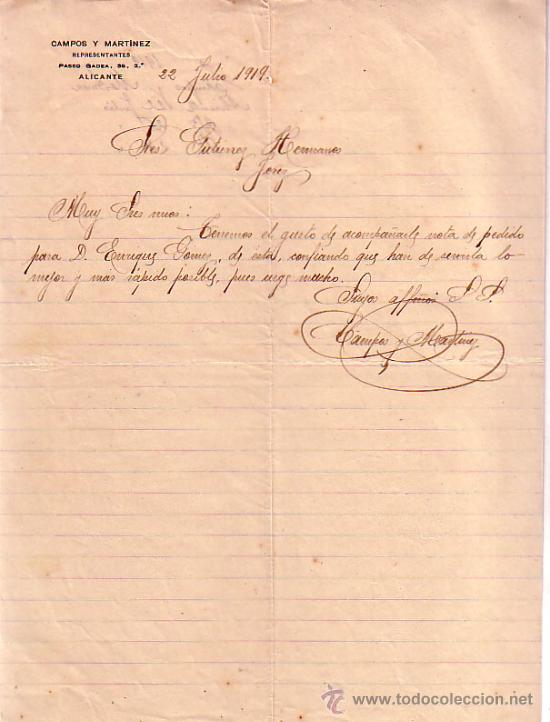 CAMPOS Y MARTÍNEZ
REPRESENTANTES
PASEO GADEA, 36, 2.º
ALICANTE
22 Julio 1919.
Sres Gutierrez Hermanos
Jerez
Muy Sres mios:
Tenemos el gusto de acompañarle nota de pedido
para D. Enrique Gomez, de esta, confiando que han de servirla lo
mejor y mas rápido posible, pues urge mucho.
Suyos affmos S. S.
Campos y Martinez
www.todocoleccion.net